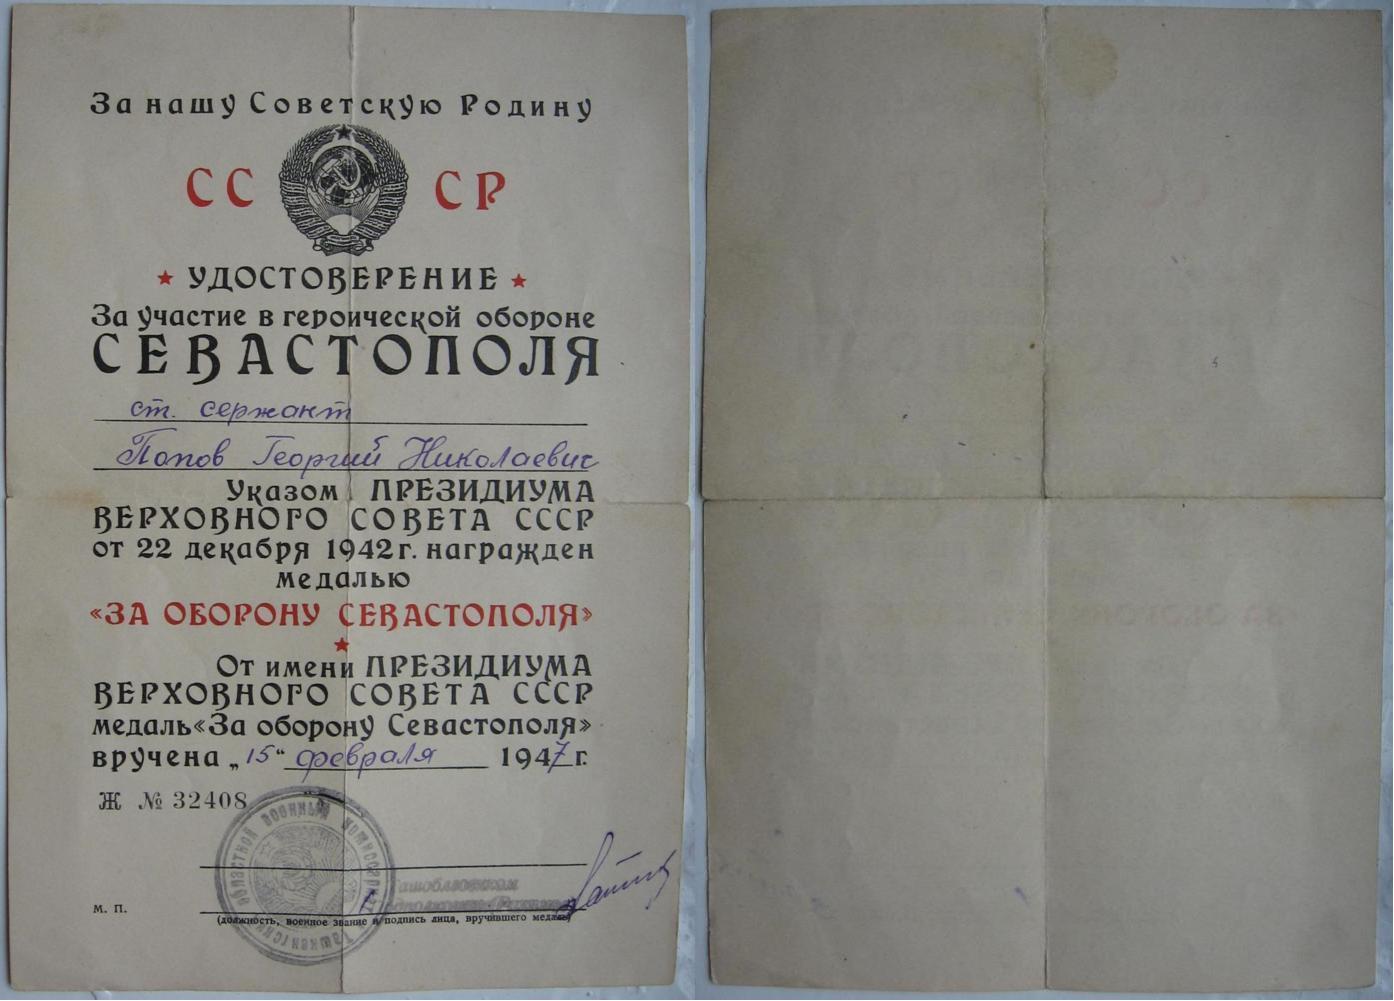 За нашу Советскую Родину
СС СР
УДОСТОВЕРЕНИЕ
За участие в героической обороне
СЕВАСТОПОЛЯ
ст. сержант
Попов Георгий Николаевич
Указом ПРЕЗИДИУМА
ВЕРХОВНОГО СОВЕТА СССР
от 22 декабря 1942 г. награжден
медалью
«ЗА ОБОРОНУ СЕВАСТОПОЛЯ»
От имени ПРЕЗИДИУМА
ВЕРХОВНОГО СОВЕТА СССР
медаль «За оборону Севастополя»
вручена „15“ февраля 1947 г.
Ж № 32408
Ташкентский областной военный комиссариат
Ташоблвоенком
М. П.
(должность, военное звание и подпись лица, вручившего медаль)